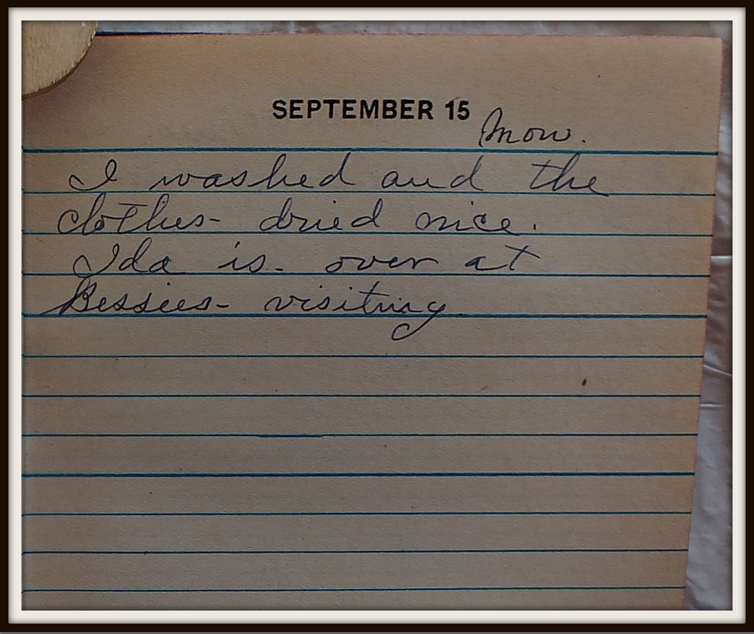 SEPTEMBER 15 Mon.
I washed and the
clothes- dried nice.
Ida is- over at
Bessies- visiting.